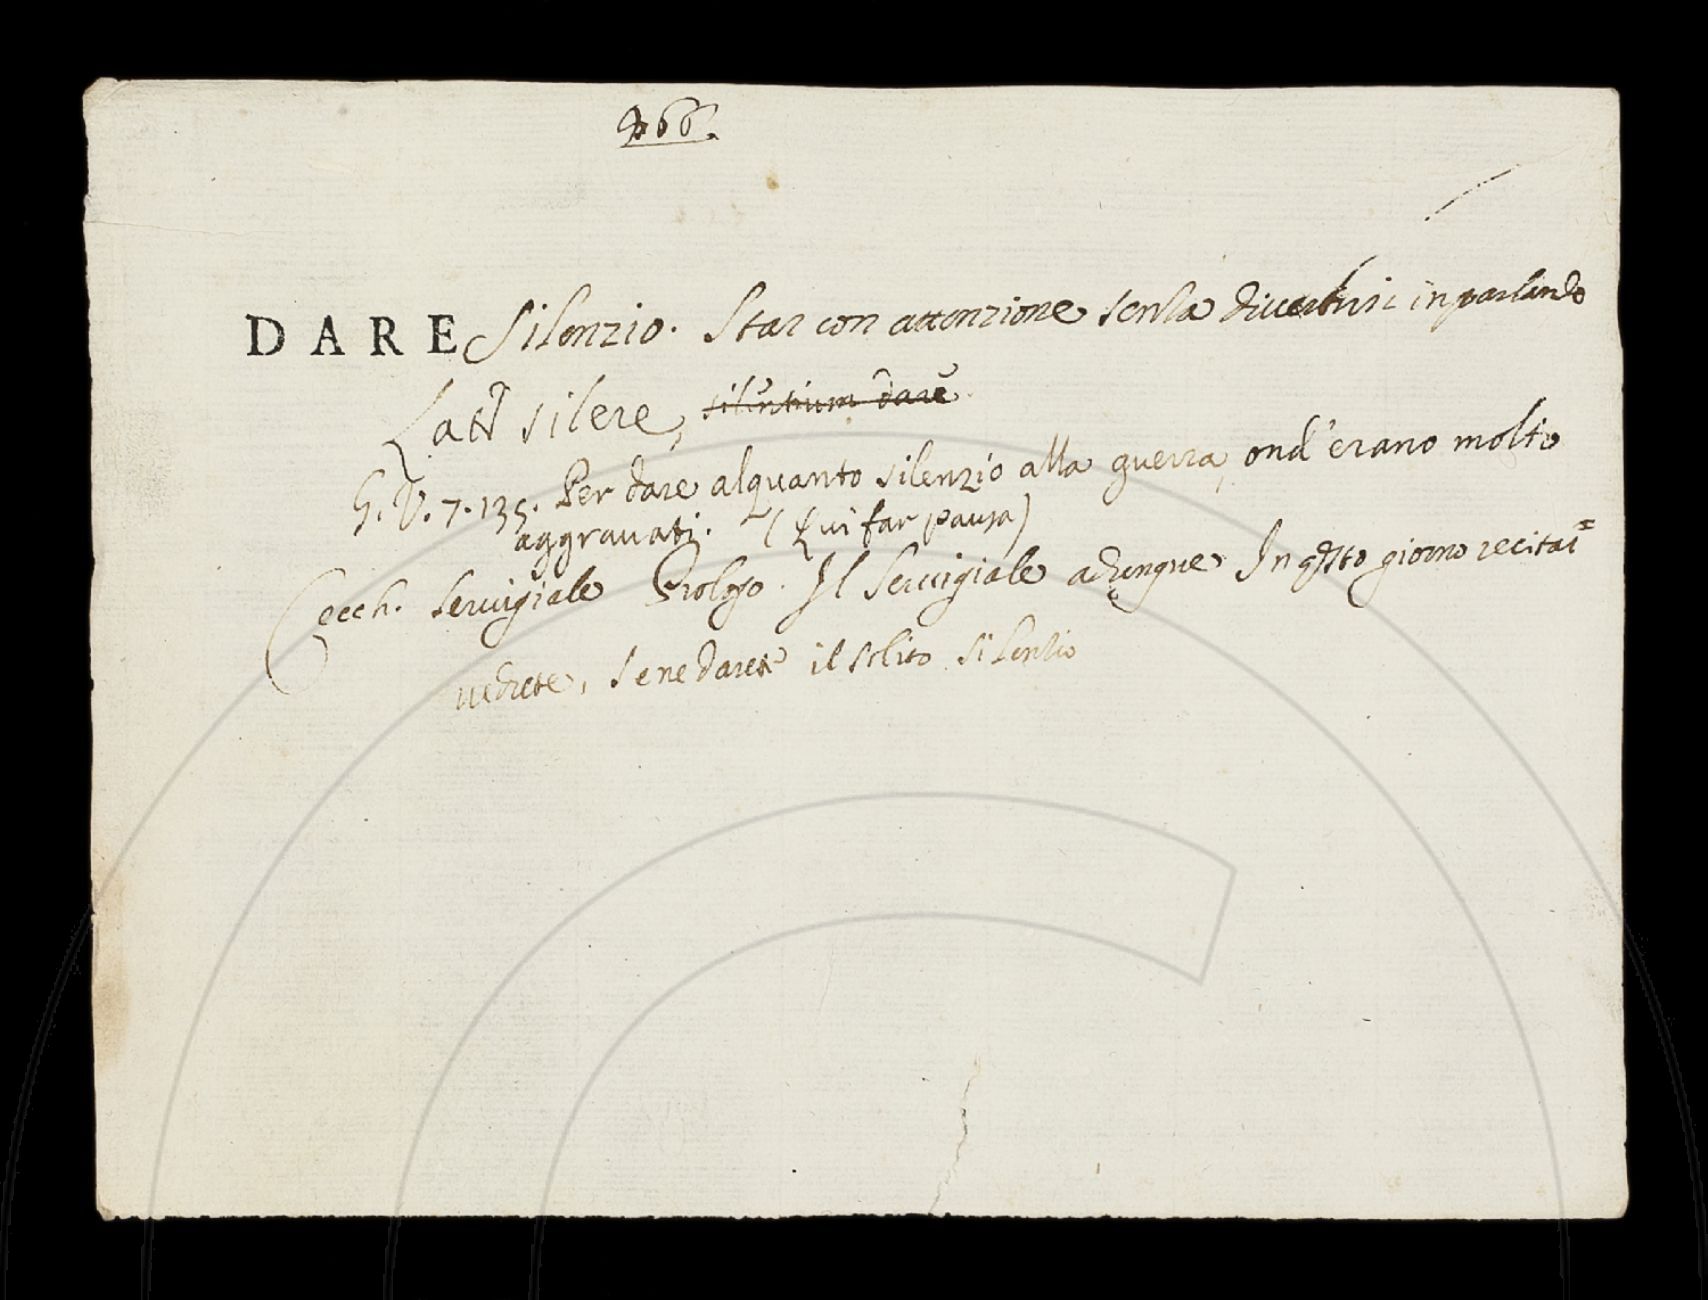 266.
DARE Silenzio. Star con attenzione senza divertirsi in parlando
Latt silere, silentium dare
G. V. 7. 135. Per dare alquanto silenzio alla guerra, ond'erano molto
aggravati. (Qui far pausa)
Cecch. Servigiale Prologo. Il Servigiale adunque In qsto giorno recitar
vedrete, Se ne darete il solito silenzio